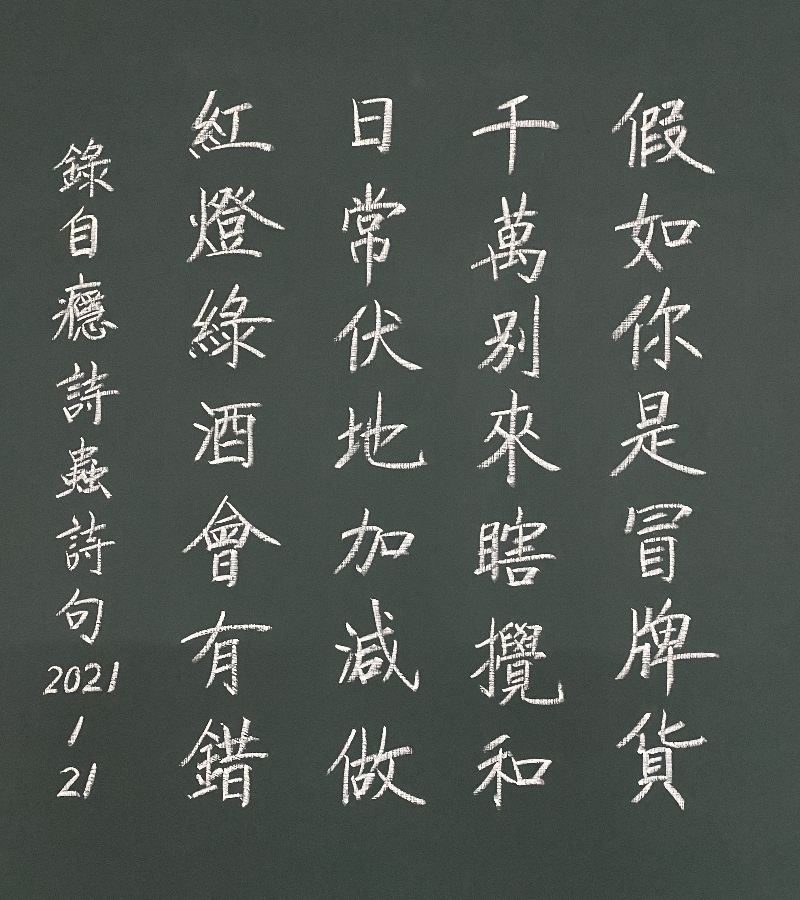 假如你是冒牌貨
千萬别來瞎攪和
日常伏地加減做
紅燈綠酒會有錯
錄自癮詩蟲詩句
2021
1
21